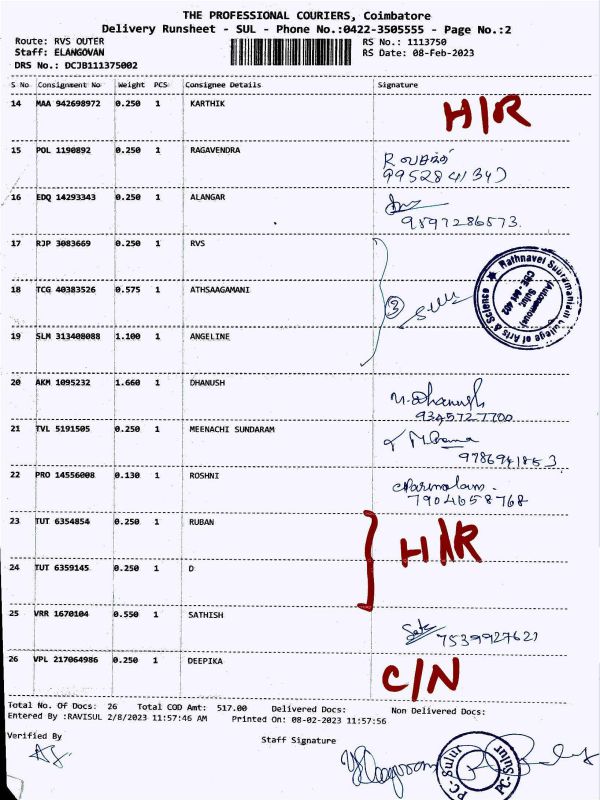 THE PROFESSIONAL COURIERS, Coimbatore
Delivery Runsheet - SUL - Phone No.:0422-3505555 - Page No.:2
Route: RVS OUTER
Staff: ELANGOVAN
DRS No.: DCJB111375002
RS No.: 1113750
RS Date: 08-Feb-2023
S No Consignment No Weight PCS Consignee Details Signature
14 MAA 942698972 0.250 1 KARTHIK H/R
15 POL 1190892 0.250 1 RAGAVENDRA
16 EDQ 14293343 0.250 1 ALANGAR
9597286573
17 RJP 3083669 0.250 1 RVS
18 TCG 40383526 0.575 1 ATHSAAGAMANI 3
19 SLM 313408088 1.100 1 ANGELINE
Rathnavel Subramaniam College of Arts & Science
(Autonomous)
Sulur,
CBE - 641 402
20 AKM 1095232 1.660 1 DHANUSH M. Dhanush
9345727700
21 TVL 5191505 0.250 1 MEENACHI SUNDARAM
9786941853
22 PRO 14556008 0.130 1 ROSHNI
7904658768
23 TUT 6354854 0.250 1 RUBAN H/R
24 TUT 6359145 0.250 1 D
25 VRR 1670104 0.550 1 SATHISH
7539927621
26 VPL 217064986 0.250 1 DEEPIKA C/N
Total No. Of Docs: 26 Total COD Amt: 517.00 Delivered Docs: Non Delivered Docs:
Entered By :RAVISUL 2/8/2023 11:57:46 AM Printed On: 08-02-2023 11:57:56
Verified By Staff Signature
PC-Sulur
PC-Sulur